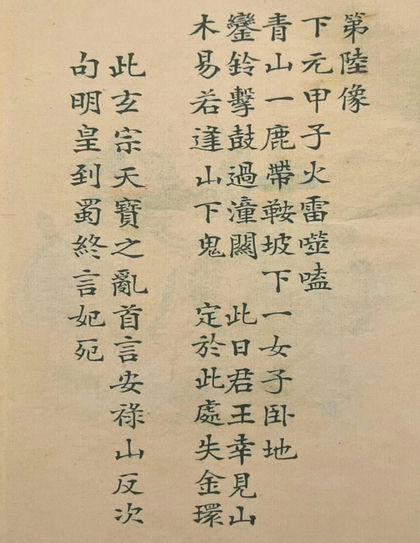 第陸像
下元甲子火雷噬嗑
青山一鹿帶鞍坡下一女子卧地
鑾鈴擊鼓過潼關　此日君王幸見山
木易若逢山下鬼　定於此處失金環
此玄宗天寶之亂首言安祿山反次
句明皇到蜀終言妃死